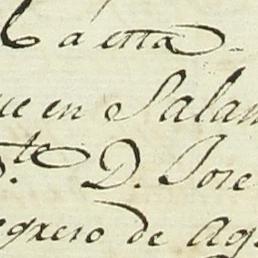 a esta
ue en Salam
te D. Jose
egreso de Ag